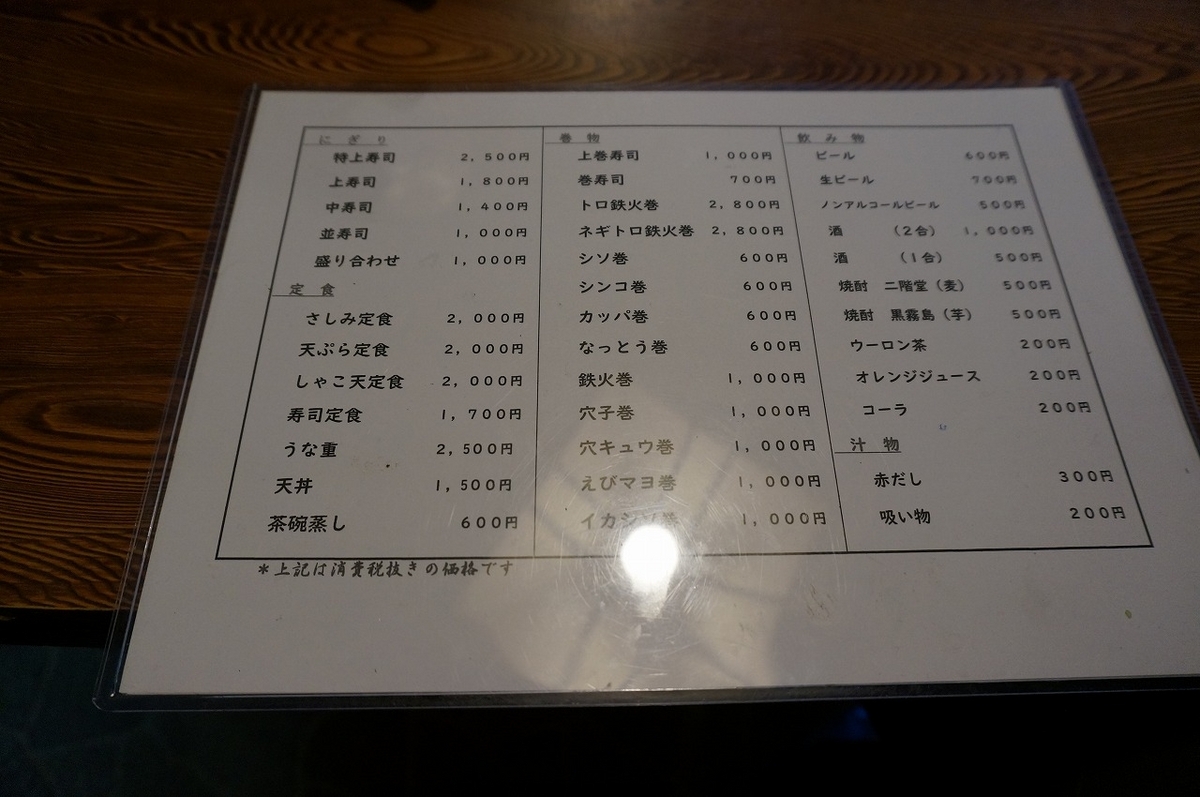 にぎり
特上寿司 2,500円
上寿司 1,800円
中寿司 1,400円
並寿司 1,000円
盛り合わせ 1,000円
定食
さしみ定食 2,000円
天ぷら定食 2,000円
しゃこ天定食 2,000円
寿司定食 1,700円
うな重 2,500円
天丼 1,500円
茶碗蒸し 600円
巻物
上巻寿司 1,000円
巻寿司 700円
トロ鉄火巻 2,800円
ネギトロ鉄火巻 2,800円
シソ巻 600円
シンコ巻 600円
カッパ巻 600円
なっとう巻 600円
鉄火巻 1,000円
穴子巻 1,000円
穴キュウ巻 1,000円
えびマヨ巻 1,000円
イカシソ巻 1,000円
飲み物
ビール 600円
生ビール 700円
ノンアルコールビール 500円
酒 (2合) 1,000円
酒 (1合) 500円
焼酎 二階堂(麦) 500円
焼酎 黒霧島(芋) 500円
ウーロン茶 200円
オレンジジュース 200円
コーラ 200円
汁物
赤だし 300円
吸い物 200円
*上記は消費税抜きの価格です